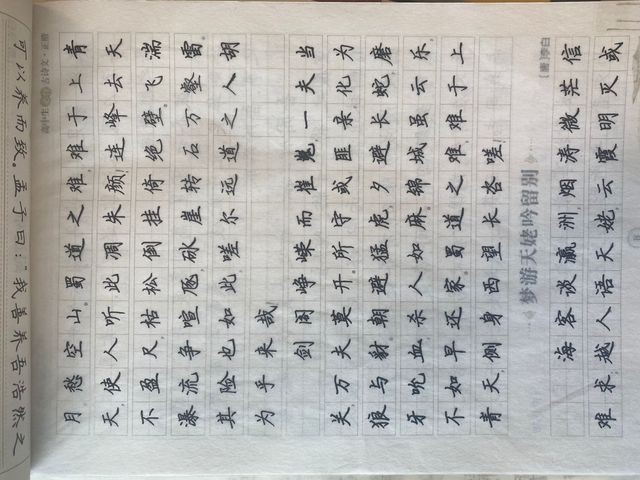 可以养而致。孟子曰："我善养吾浩然之
古诗文·正楷
月愁空山。蜀道之难，难于上青
天，使人听此凋朱颜！连峰去天
不盈尺，枯松倒挂倚绝壁。飞湍
瀑流争喧豗，砯崖转石万壑雷。
其险也如此，嗟尔远道之人胡
为乎来哉！
剑阁峥嵘而崔嵬，一夫当
关，万夫莫开。所守或匪亲，化为
狼与豺。朝避猛虎，夕避长蛇，磨
牙吮血，杀人如麻。锦城虽云乐，
不如早还家。蜀道之难，难于上
青天，侧身西望长咨嗟！
梦游天姥吟留别
【唐】李白
海客谈瀛洲，烟涛微茫信
难求，越人语天姥，云霞明灭或